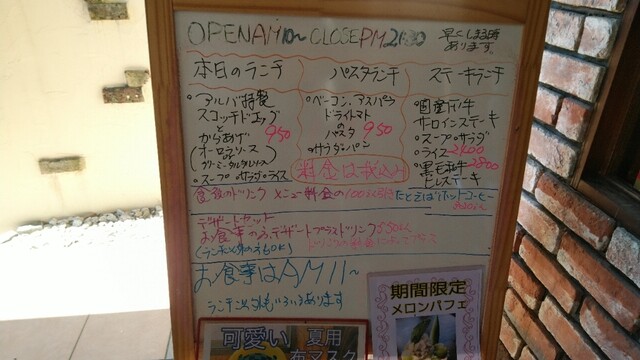 OPEN AM10~ CLOSE PM21:30
早くしまる時
あります。
本日のランチ
パスタランチ
ステーキランチ
・アルバ特製
スコッチドエッグ
と
からあげ 950
(オーロラソース
or
クリーミータルタルソース)
・スープ ・サラダ・ライス
・ベーコン・アスパラ
ドライトマト
の
パスタ 950
・サラダ・パン
・国産牛
サーロインステーキ
・スープ・サラダ
・ライス 2400
・黒毛和牛 2800
ヒレステーキ
料金は税込み
食後のドリンク メニュー料金の100引き
たとえばホットコーヒー
デザートセット
お食事のみ、デザートプラスドリンク550
(ランチ以外もOK)
お食事はAM11~
ランチ以外もいろいろあります
期間限定
メロンパフェ
可愛い 夏用
布マスク